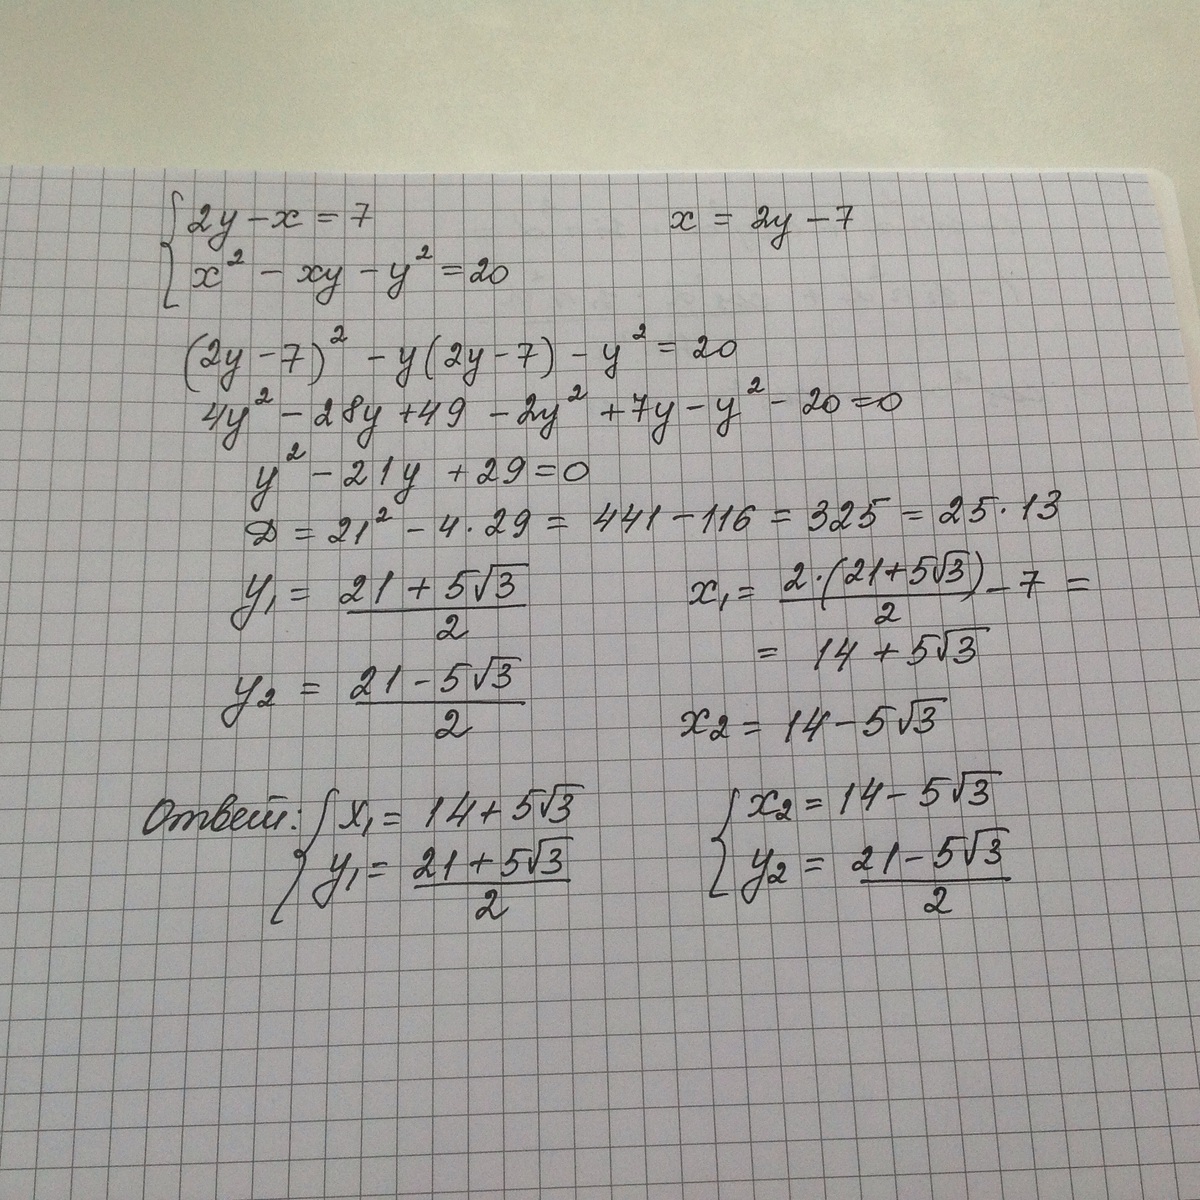 {2y - x = 7    x = 2y - 7
{x² - xy - y² = 20
(2y - 7)² - y(2y - 7) - y² = 20
4y² - 28y + 49 - 2y² + 7y - y² - 20 = 0
y² - 21y + 29 = 0
D = 21² - 4·29 = 441 - 116 = 325 = 25·13
y₁ = (21 + 5√3)/2    x₁ = 2·(21 + 5√3)/2 - 7 =
= 14 + 5√3
y₂ = (21 - 5√3)/2    x₂ = 14 - 5√3
Ответ: {x₁ = 14 + 5√3    {x₂ = 14 - 5√3
{y₁ = (21 + 5√3)/2    {y₂ = (21 - 5√3)/2